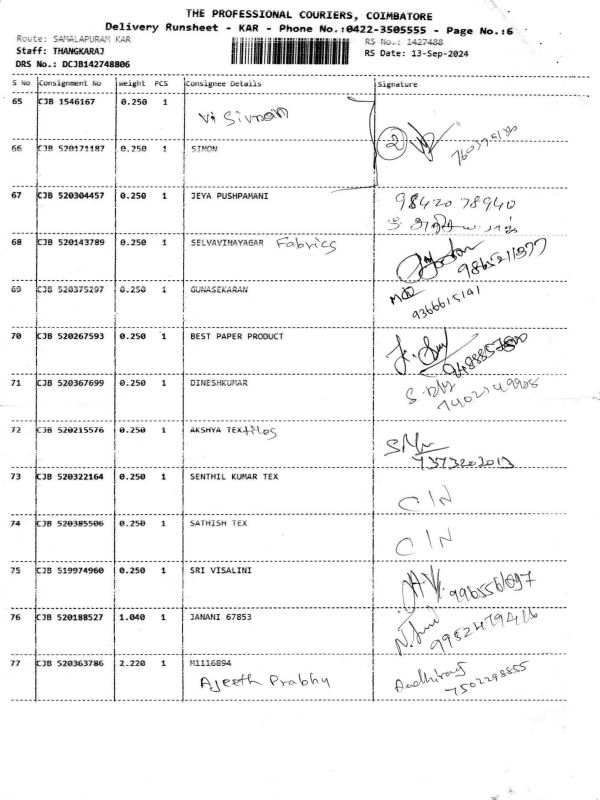 THE PROFESSIONAL COURIERS, COIMBATORE
Delivery Runsheet - KAR - Phone No.:0422-3505555 - Page No.:6
Route: SAMALAPURAM KAR
RS No.: 1427488
Staff: THANGKARAJ
RS Date: 13-Sep-2024
DRS No.: DCJB142748806
S No Consignment No weight PCS Consignee Details Signature
65 CJB 1546167 0.250 1
66 CJB 520171187 0.250 1 SIMON 2
67 CJB 520304457 0.250 1 JEYA PUSHPAMANI 98420 78940
68 CJB 520143789 0.250 1 SELVAVINAYAGAR Fabrics
69 CJB 520375297 0.250 1 GUNASEKARAN 9366615191
70 CJB 520267593 0.250 1 BEST PAPER PRODUCT
71 CJB 520367699 0.250 1 DINESHKUMAR
72 CJB 520215576 0.250 1 AKSHYA TEXtiles
73 CJB 520322164 0.250 1 SENTHIL KUMAR TEX C/N
74 CJB 520385506 0.250 1 SATHISH TEX C/N
75 CJB 519974960 0.250 1 SRI VISALINI
76 CJB 520188527 1.040 1 JANANI 67853
77 CJB 520363786 2.220 1 M1116894
Ajeeth Prabhu
7502298855